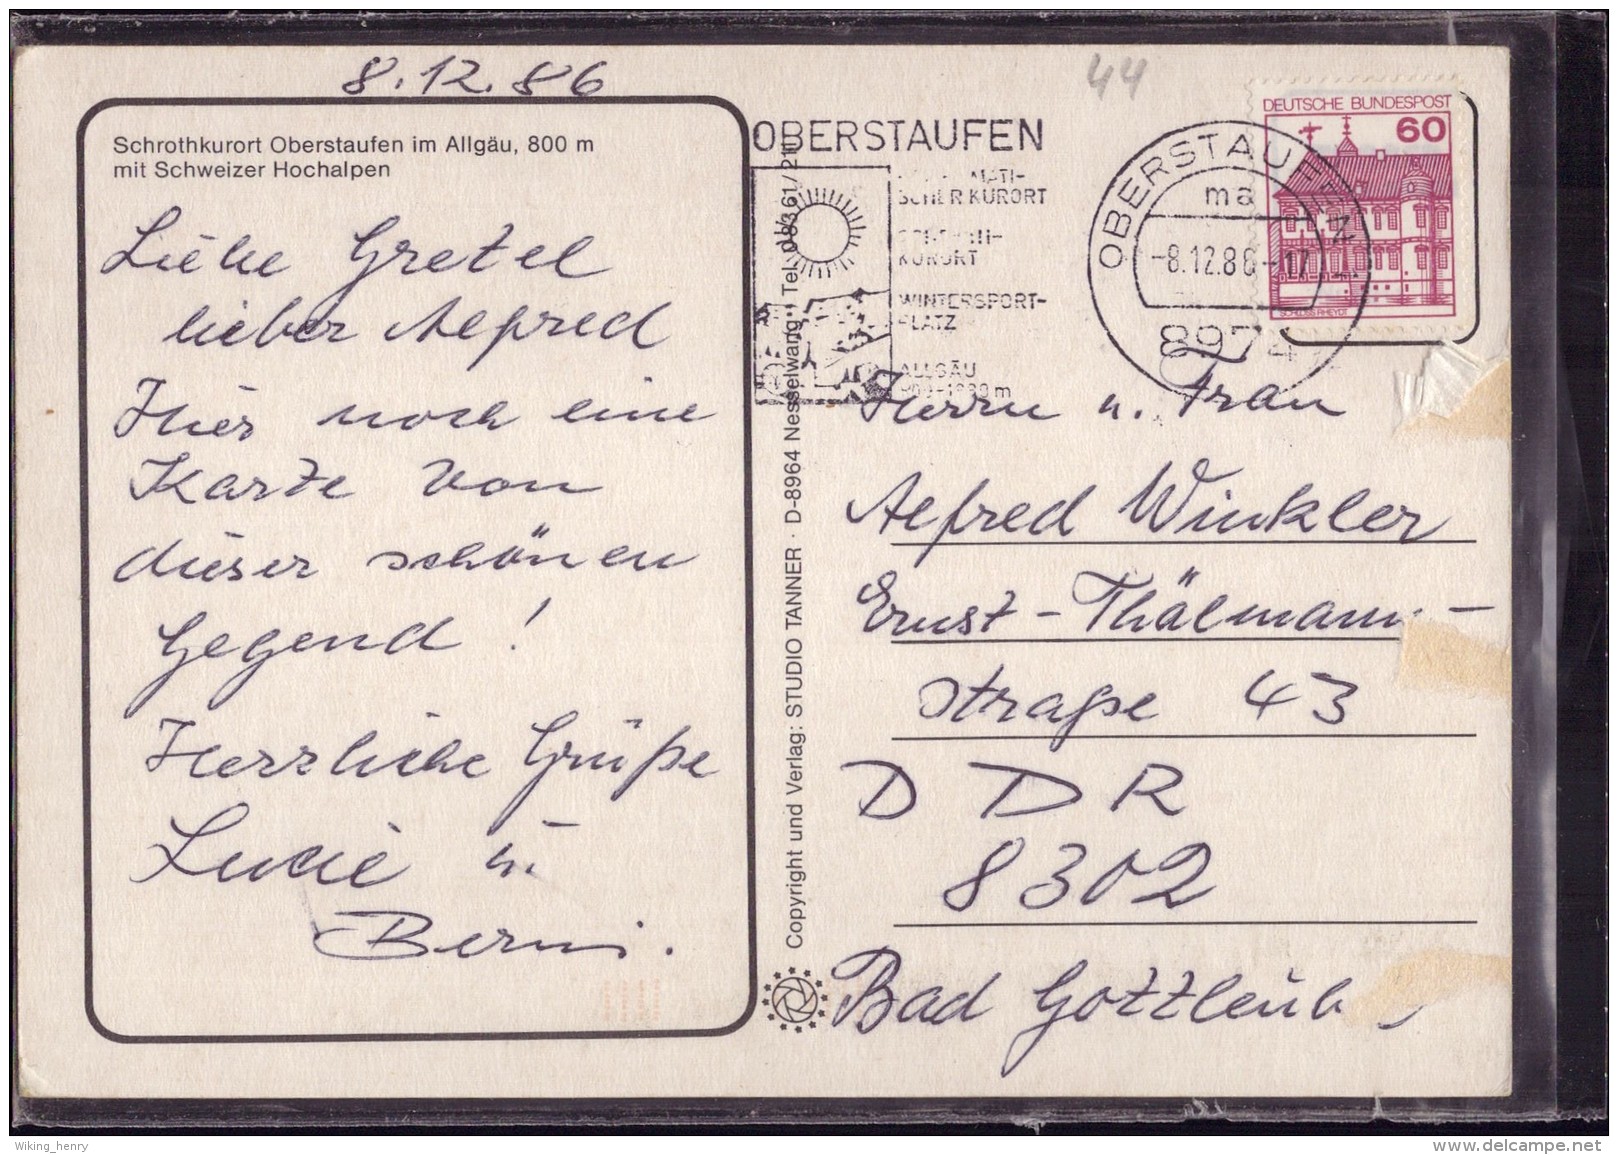 8.12.86
44
Schrothkurort Oberstaufen im Allgäu, 800 m
mit Schweizer Hochalpen
Liebe Gretel
lieber Alfred
Hier noch eine
Karte von
dieser schönen
Gegend!
Herzliche Grüße
Lucie u.
Berni.
OBERSTAUFEN
SCHER KURORT
KURORT
WINTERSPORT-
PLATZ
ALLGÄU
OBERSTAUFEN
ma
-8.12.86-17
8974
DEUTSCHE BUNDESPOST
60
SCHLOSS RHEYDT
Copyright und Verlag: STUDIO TANNER · D-8964 Nesselwang · Tel. 08361/
Herrn u. Frau
Alfred Winkler
Ernst-Thälmann-
straße 43
DDR
8302
Bad Gottleub
Wiking_henry
delcampe.net